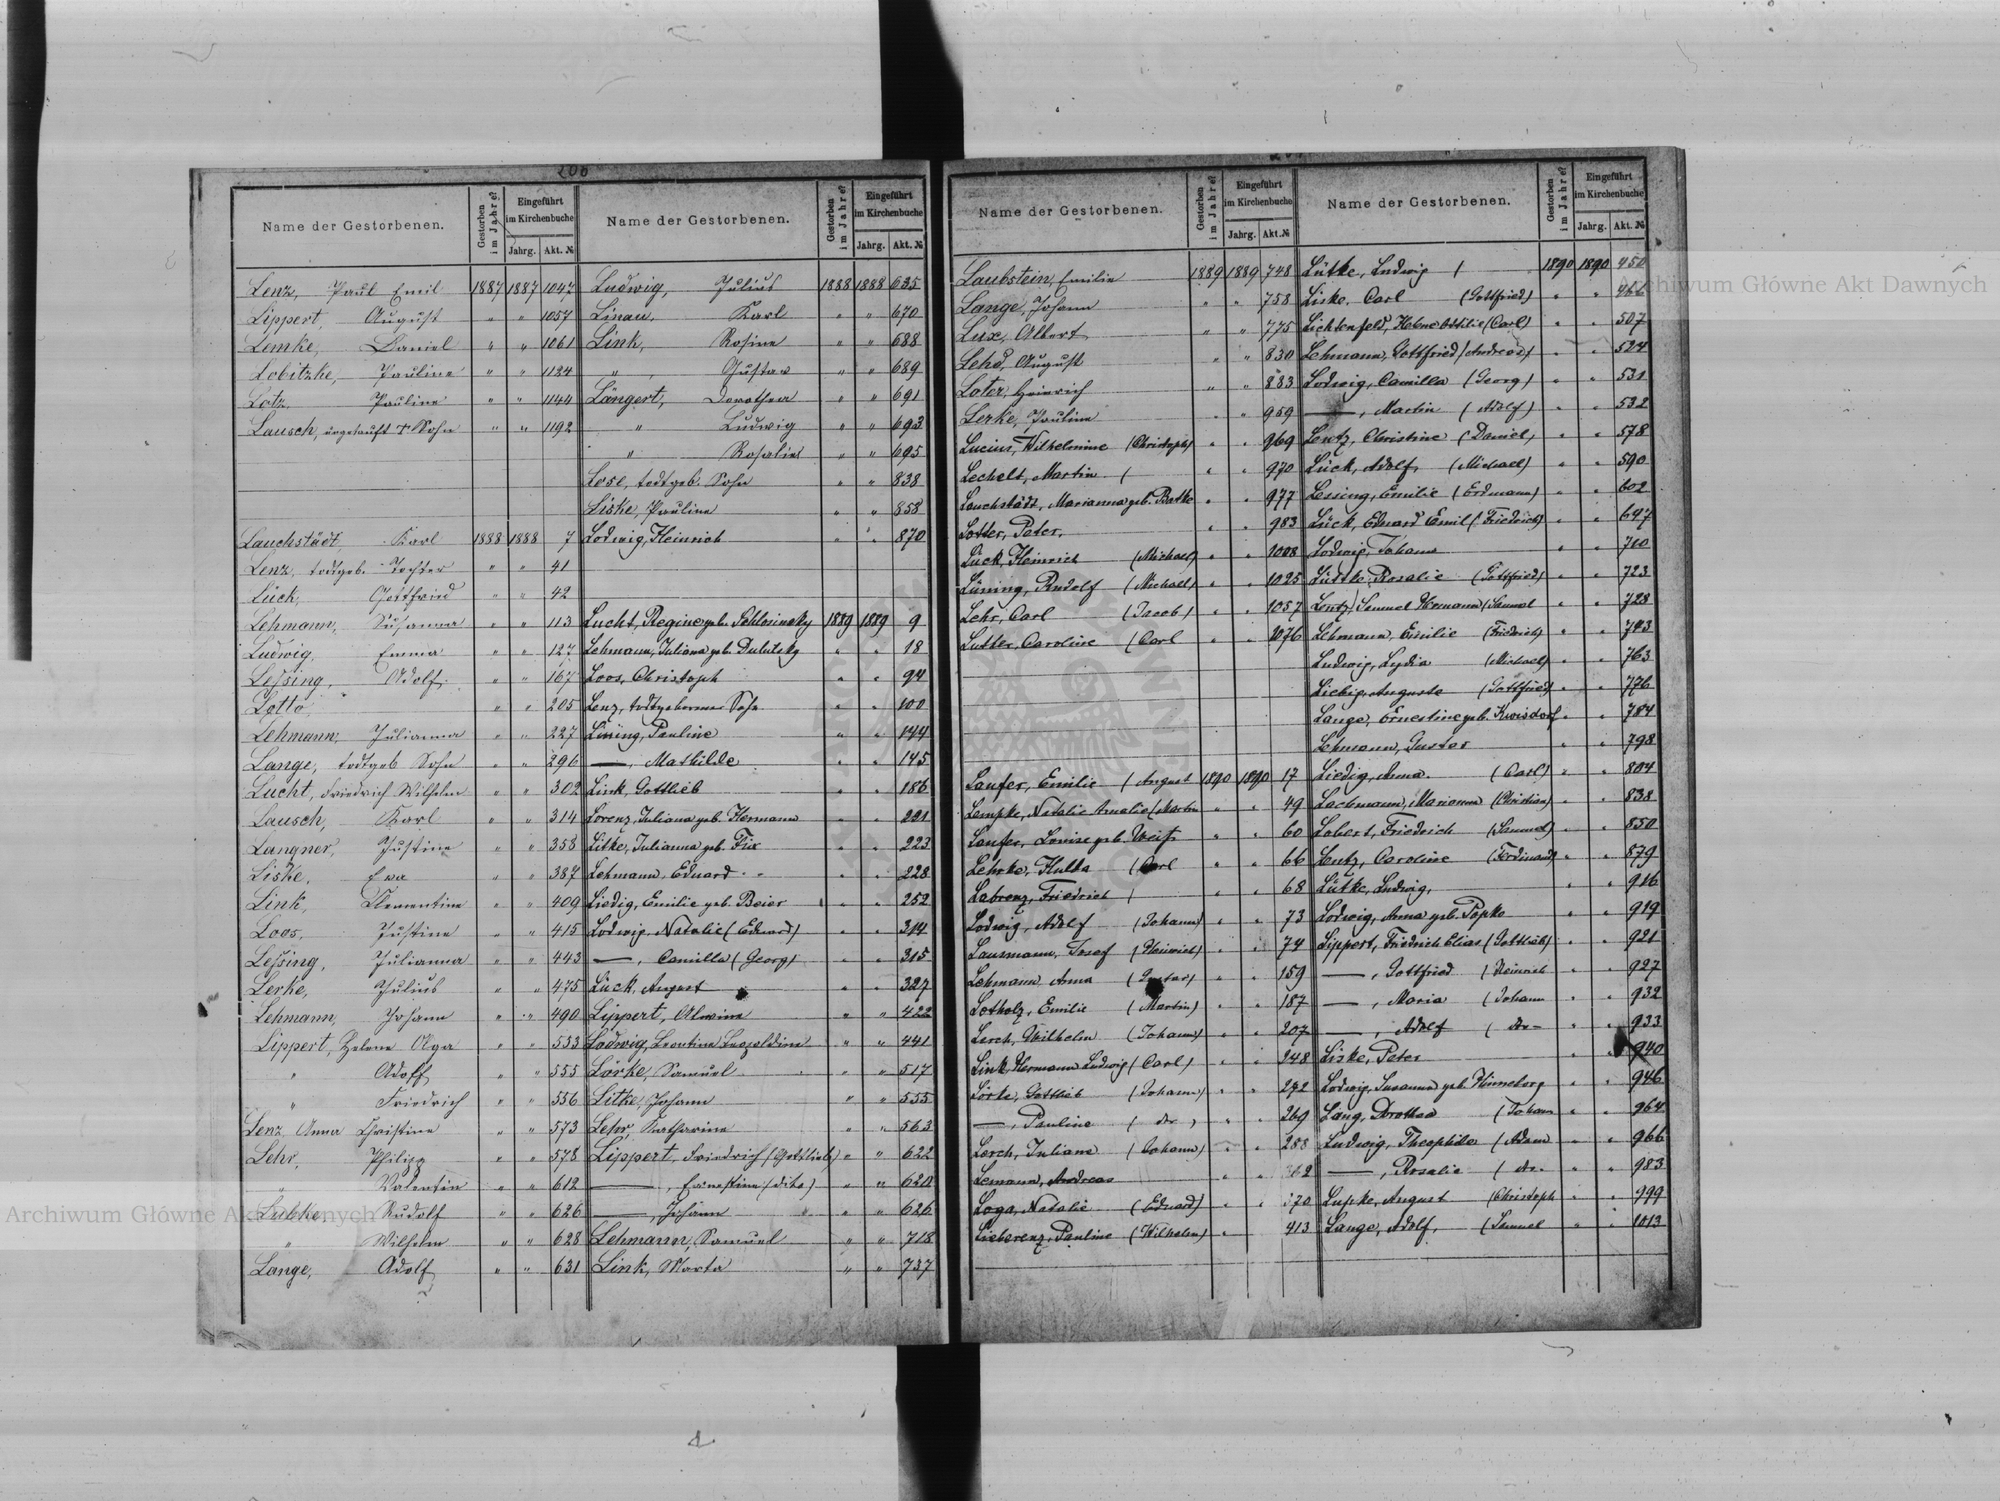 206
Name der Gestorbenen. Gestorben im Jahre? Eingeführt im Kirchenbuche Jahrg. Akt. №
Lenz, Paul Emil 1887 1887 1047
Lippert, August " " 1057
Lemke, Daniel " " 1061
Lobitzke, Pauline " " 1124
Lotz, Pauline " " 1144
Lausch, ungetauft † Sohn " " 1192
Lauchstädt, Karl 1888 1888 7
Lenz, todtgeb. Tochter " " 41
Lück, Gottfried " " 42
Lehmann, Susanna " " 113
Ludwig, Emma " " 127
Leßing, Adolf " " 167
Lotto " " 205
Lehmann, Julianna " " 227
Lange, todtgeb Sohn " " 296
Lucht, Friedrich Wilhelm " " 302
Lausch, Karl " " 314
Langner, Justine " " 358
Liske, Eva " " 387
Link, Clementine " " 409
Loos, Justine " " 415
Leßing, Julianna " " 443
Lerke, Julius " " 475
Lehmann, Johann " " 490
Lippert, Helene Olga " " 533
" Adolf " " 555
" Friedrich " " 556
Lenz, Anna Christine " " 573
Lehr, Philipp " " 578
" Valentin " " 612
Lübke, Rudolf " " 626
" Wilhelm " " 628
Lange, Adolf " " 631
Name der Gestorbenen. Gestorben im Jahre? Eingeführt im Kirchenbuche Jahrg. Akt. №
Ludwig, Julius 1888 1888 635
Linau, Karl " " 670
Link, Rosine " " 688
" , Gustav " " 689
Längert, Dorothea " " 691
" Ludwig " " 693
" Rosalie " " 695
Lose, todtgeb. Sohn " " 838
Liske, Pauline " " 858
Lodwig, Heinrich " " 870
Lucht, Regine geb. Schlosinsky 1889 1889 9
Lehmann, Juliana geb. " " 18
Loos, Christoph " " 94
Lenz, todtgeborener Sohn " " 100
Lüning, Pauline " " 144
—, Mathilde " " 145
Link, Gottlieb " " 186
Lorenz, Juliana geb. Hermann " " 221
Litke, Julianna geb. Fix " " 223
Lehmann, Eduard " " 228
Liedig, Emilie geb. Beier " " 252
Lodwig, Natalie (Eduard) " " 314
—, Camilla (Georg) " " 315
Lück, August " " 327
Lippert, Alwine " " 422
Lodwig, Leontine Leopoldine " " 441
Lörke, Samuel " " 517
Litke, Johann " " 555
Lehr, Katharine " " 563
Lippert, Friedrich (Gottlieb) " " 622
—, Ernestine (dito) " " 620
—, Johann " " " 626
Lehmann, Samuel " " 718
Link, Marta " " 737
Name der Gestorbenen. Gestorben im Jahre? Eingeführt im Kirchenbuche Jahrg. Akt. №
Laubstein, Emilie 1889 1889 748
Lange, Johann " " 758
Lux, Albert " " 775
Lehd, August " " 830
Loter, Heinrich " " 883
Lerke, Pauline " " 959
Lucius, Wilhelmine (Christoph) " " 969
Lechelt, Martin ( " " 970
Lauchstädt, Marianna geb. Batke " " 977
Lotter, Peter, " " 983
Lück, Heinrich (Michael) " " 1008
Lüning, Rudolf (Michael) " " 1025
Lehr, Carl (Jacob) " " 1057
Lutter, Caroline (Carl " " 1076
Laufer, Emilie (August 1890 1890 17
Lempke, Natalie Amalie (Martin " " 49
Laufer, Louise geb. Weiß " " 60
Lehrke, Hulda (Carl " " 66
Labrenz, Friedrich ( " " 68
Lodwig, Adolf (Johann) " " 73
Lausmann, Josef (Heinrich) " " 74
Lehmann, Anna (Gustav) " " 159
Lotholz, Emilie (Martin) " " 187
Lerch, Wilhelm (Johann) " " 207
Link, Hermann Ludwig (Carl) " " 248
Lörke, Gottlieb (Johann) " " 292
—, Pauline ( do ) " " 269
Lerch, Juliane (Johann) " " 288
Lemann, Andreas " " 362
Loga, Natalie (Eduard) " " 370
Lieberenz, Pauline (Wilhelm) " 413
Name der Gestorbenen. Gestorben im Jahre? Eingeführt im Kirchenbuche Jahrg. Akt. №
Lütke, Ludwig ( 1890 1890 450
Liske, Carl (Gottfried) " " 466
Lichtenfeld, Helene Ottilie (Carl) " " 507
Lehmann, Gottfried (Andreas) " " 524
Lodwig, Camilla (Georg) " " 531
—, Martin (Adolf) " " 532
Lentz, Christine (Daniel) " " 578
Lück, Adolf (Michael) " " 590
Lessing, Emilie (Erdmann) " " 602
Lück, Eduard Emil (Friedrich) " " 647
Lodwig, Johann " " 710
Lüttke, Rosalie (Gottfried) " " 723
Lentz, Samuel Hermann (Samuel " " 728
Lehmann, Emilie (Friedrich) " " 743
Ludwig, Lydia (Michael) " " 763
Liebig, Auguste (Gottfried) " " 776
Lange, Ernestine geb. Kwisdorf " " 784
Lehmann, Gustav " " 798
Liedig, Anna. (Carl) " " 804
Lachmann, Marianna (Christian) " " 838
Lobert, Friedrich (Samuel) " " 850
Lentz, Caroline (Ferdinand) " " 879
Lütke, Ludwig, " " 916
Lodwig, Anna geb. Popko " " 919
Lippert, Friedrich Elias (Gottlieb) " " 921
—, Gottfried (Heinrich " " 927
—, Maria (Johann " " 932
—, Adolf ( do— " " 933
Liske, Peter " " 940
Lodwig, Susanna geb. Hinneborg " " 946
Lang, Dorothea (Johann " " 964
Ludwig, Theophile (Adam " " 966
—, Rosalie ( do— " " 983
Lupke, August (Christoph " " 999
Lange, Adolf, (Samuel " " 1013
Archiwum Główne Akt Dawnych
Archiwum Główne Akt Dawnych